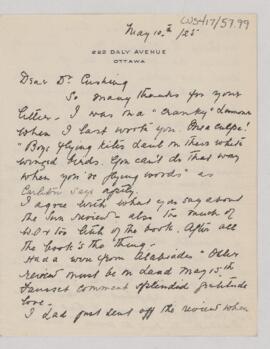 CUS417/57.99
May 10th /25
222 DALY AVENUE
OTTAWA
Dear Dr. Cushing
So many thanks for your
letter. I was on a "cranky"
when I last wrote you. Mea culpa!
"Boys flying kites haul in their white
winged birds. You can't do that way
when you're flying words" as
Carleton says aptly.
I agree with what you say about
the Sun review – also too much of
W.O & too little of the book. After all
the book's the thing.
Had a won from
review must be on hand May 15th
comment splendid gratitude
love.
I had just sent off the review when